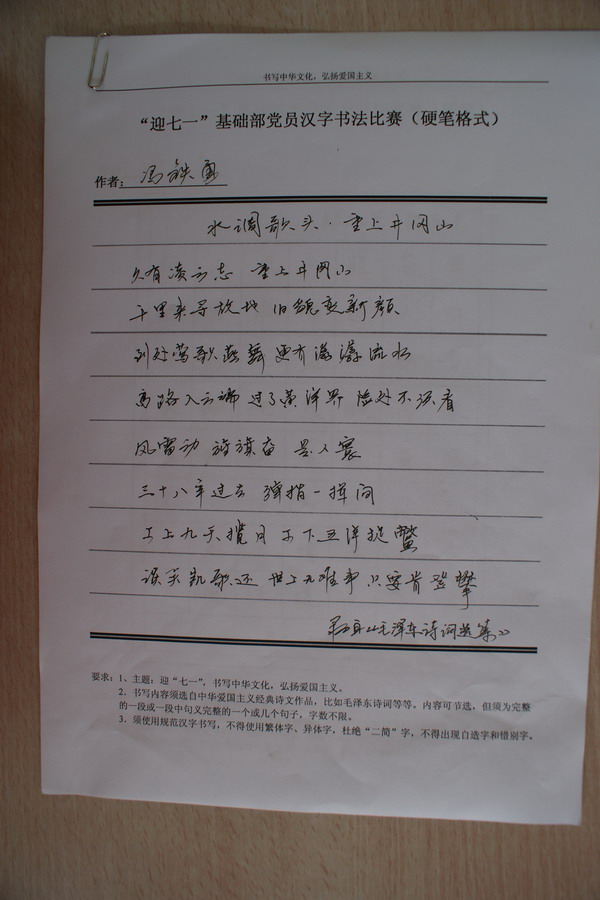 书写中华文化，弘扬爱国主义
“迎七一”基础部党员汉字书法比赛（硬笔格式）
作者：冯铁勇
水调歌头·重上井冈山
久有凌云志 重上井冈山
千里来寻故地 旧貌变新颜
到处莺歌燕舞 更有潺潺流水
高路入云端 过了黄洋界 险处不须看
风雷动 旌旗奋 是人寰
三十八年过去 弹指一挥间
可上九天揽月 可下五洋捉鳖
谈笑凯歌还 世上无难事 只要肯登攀
《毛泽东诗词选集》
要求：1、主题：迎“七一”，书写中华文化，弘扬爱国主义。
2．书写内容须选自中华爱国主义经典诗文作品，比如毛泽东诗词等等。内容可节选，但须为完整
的一段或一段中句义完整的一个或几个句子，字数不限。
3．须使用规范汉字书写，不得使用繁体字、异体字，杜绝“二简”字，不得出现自造字和错别字。